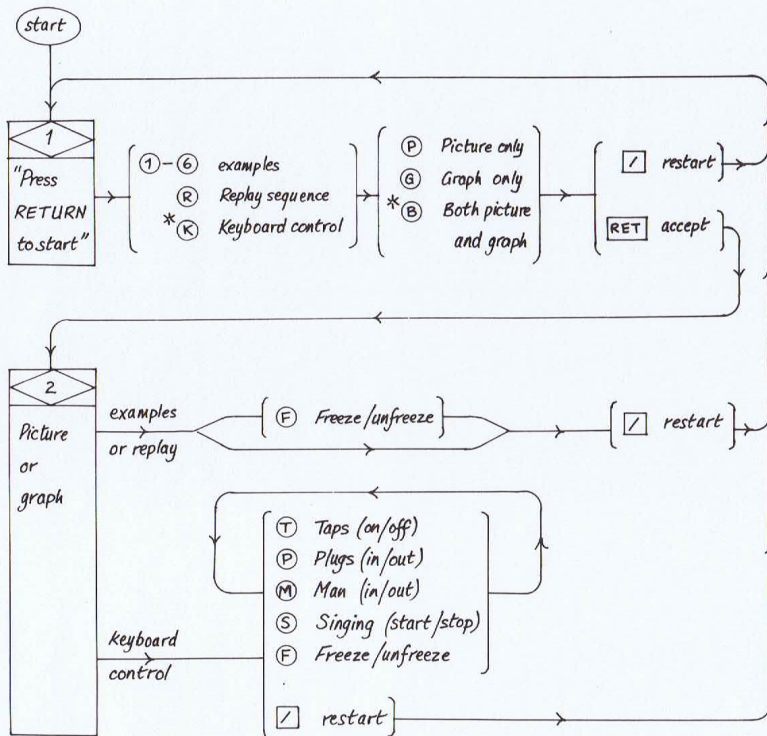 start
1
"Press
RETURN
to start"
1 - 6 examples
R Replay sequence
* K Keyboard control
P Picture only
G Graph only
* B Both picture
and graph
/ restart
RET accept
2
Picture
or
graph
examples
or replay
F Freeze/unfreeze
/ restart
keyboard
control
T Taps (on/off)
P Plugs (in/out)
M Man (in/out)
S Singing (start/stop)
F Freeze/unfreeze
/ restart